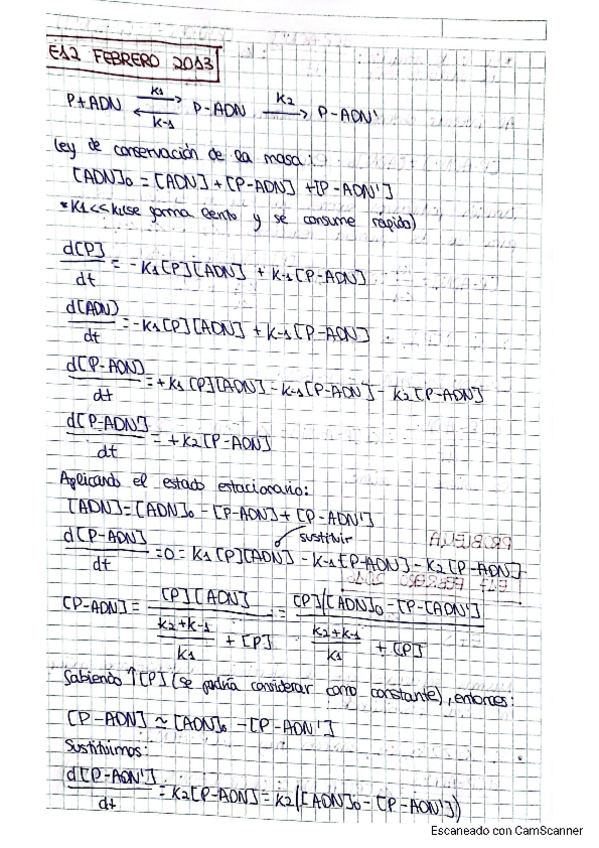 E12 FEBRERO 2013
P+ADN ⇄ P-ADN → P-ADN'
K1 K-1 K2
Ley de conservación de la masa:
[ADN]₀ = [ADN] + [P-ADN] + [P-ADN']
*K1<<K (se forma lento y se consume rápido)
d[P]/dt = -K1[P][ADN] + K-1[P-ADN]
d[ADN]/dt = -K1[P][ADN] + K-1[P-ADN]
d[P-ADN]/dt = +K1[P][ADN] - K-1[P-ADN] - K2[P-ADN]
d[P-ADN']/dt = +K2[P-ADN]
Aplicando el estado estacionario:
[ADN] = [ADN]₀ - [P-ADN] + [P-ADN']
sustituir
d[P-ADN]/dt = 0 = K1[P][ADN] - K-1[P-ADN] - K2[P-ADN]
[P-ADN] = [P][ADN] / (K2+K-1/K1 + [P]) = [P]([ADN]₀ - [P-[ADN'] / (K2+K-1/K1 + [P])
Sabiendo ↑[P] (se podría considerar como constante), entonces:
[P-ADN] ≃ [ADN]₀ - [P-ADN']
Sustituimos:
d[P-ADN']/dt = K2[P-ADN] = K2([ADN]₀ - [P-ADN'])
Escaneado con CamScanner